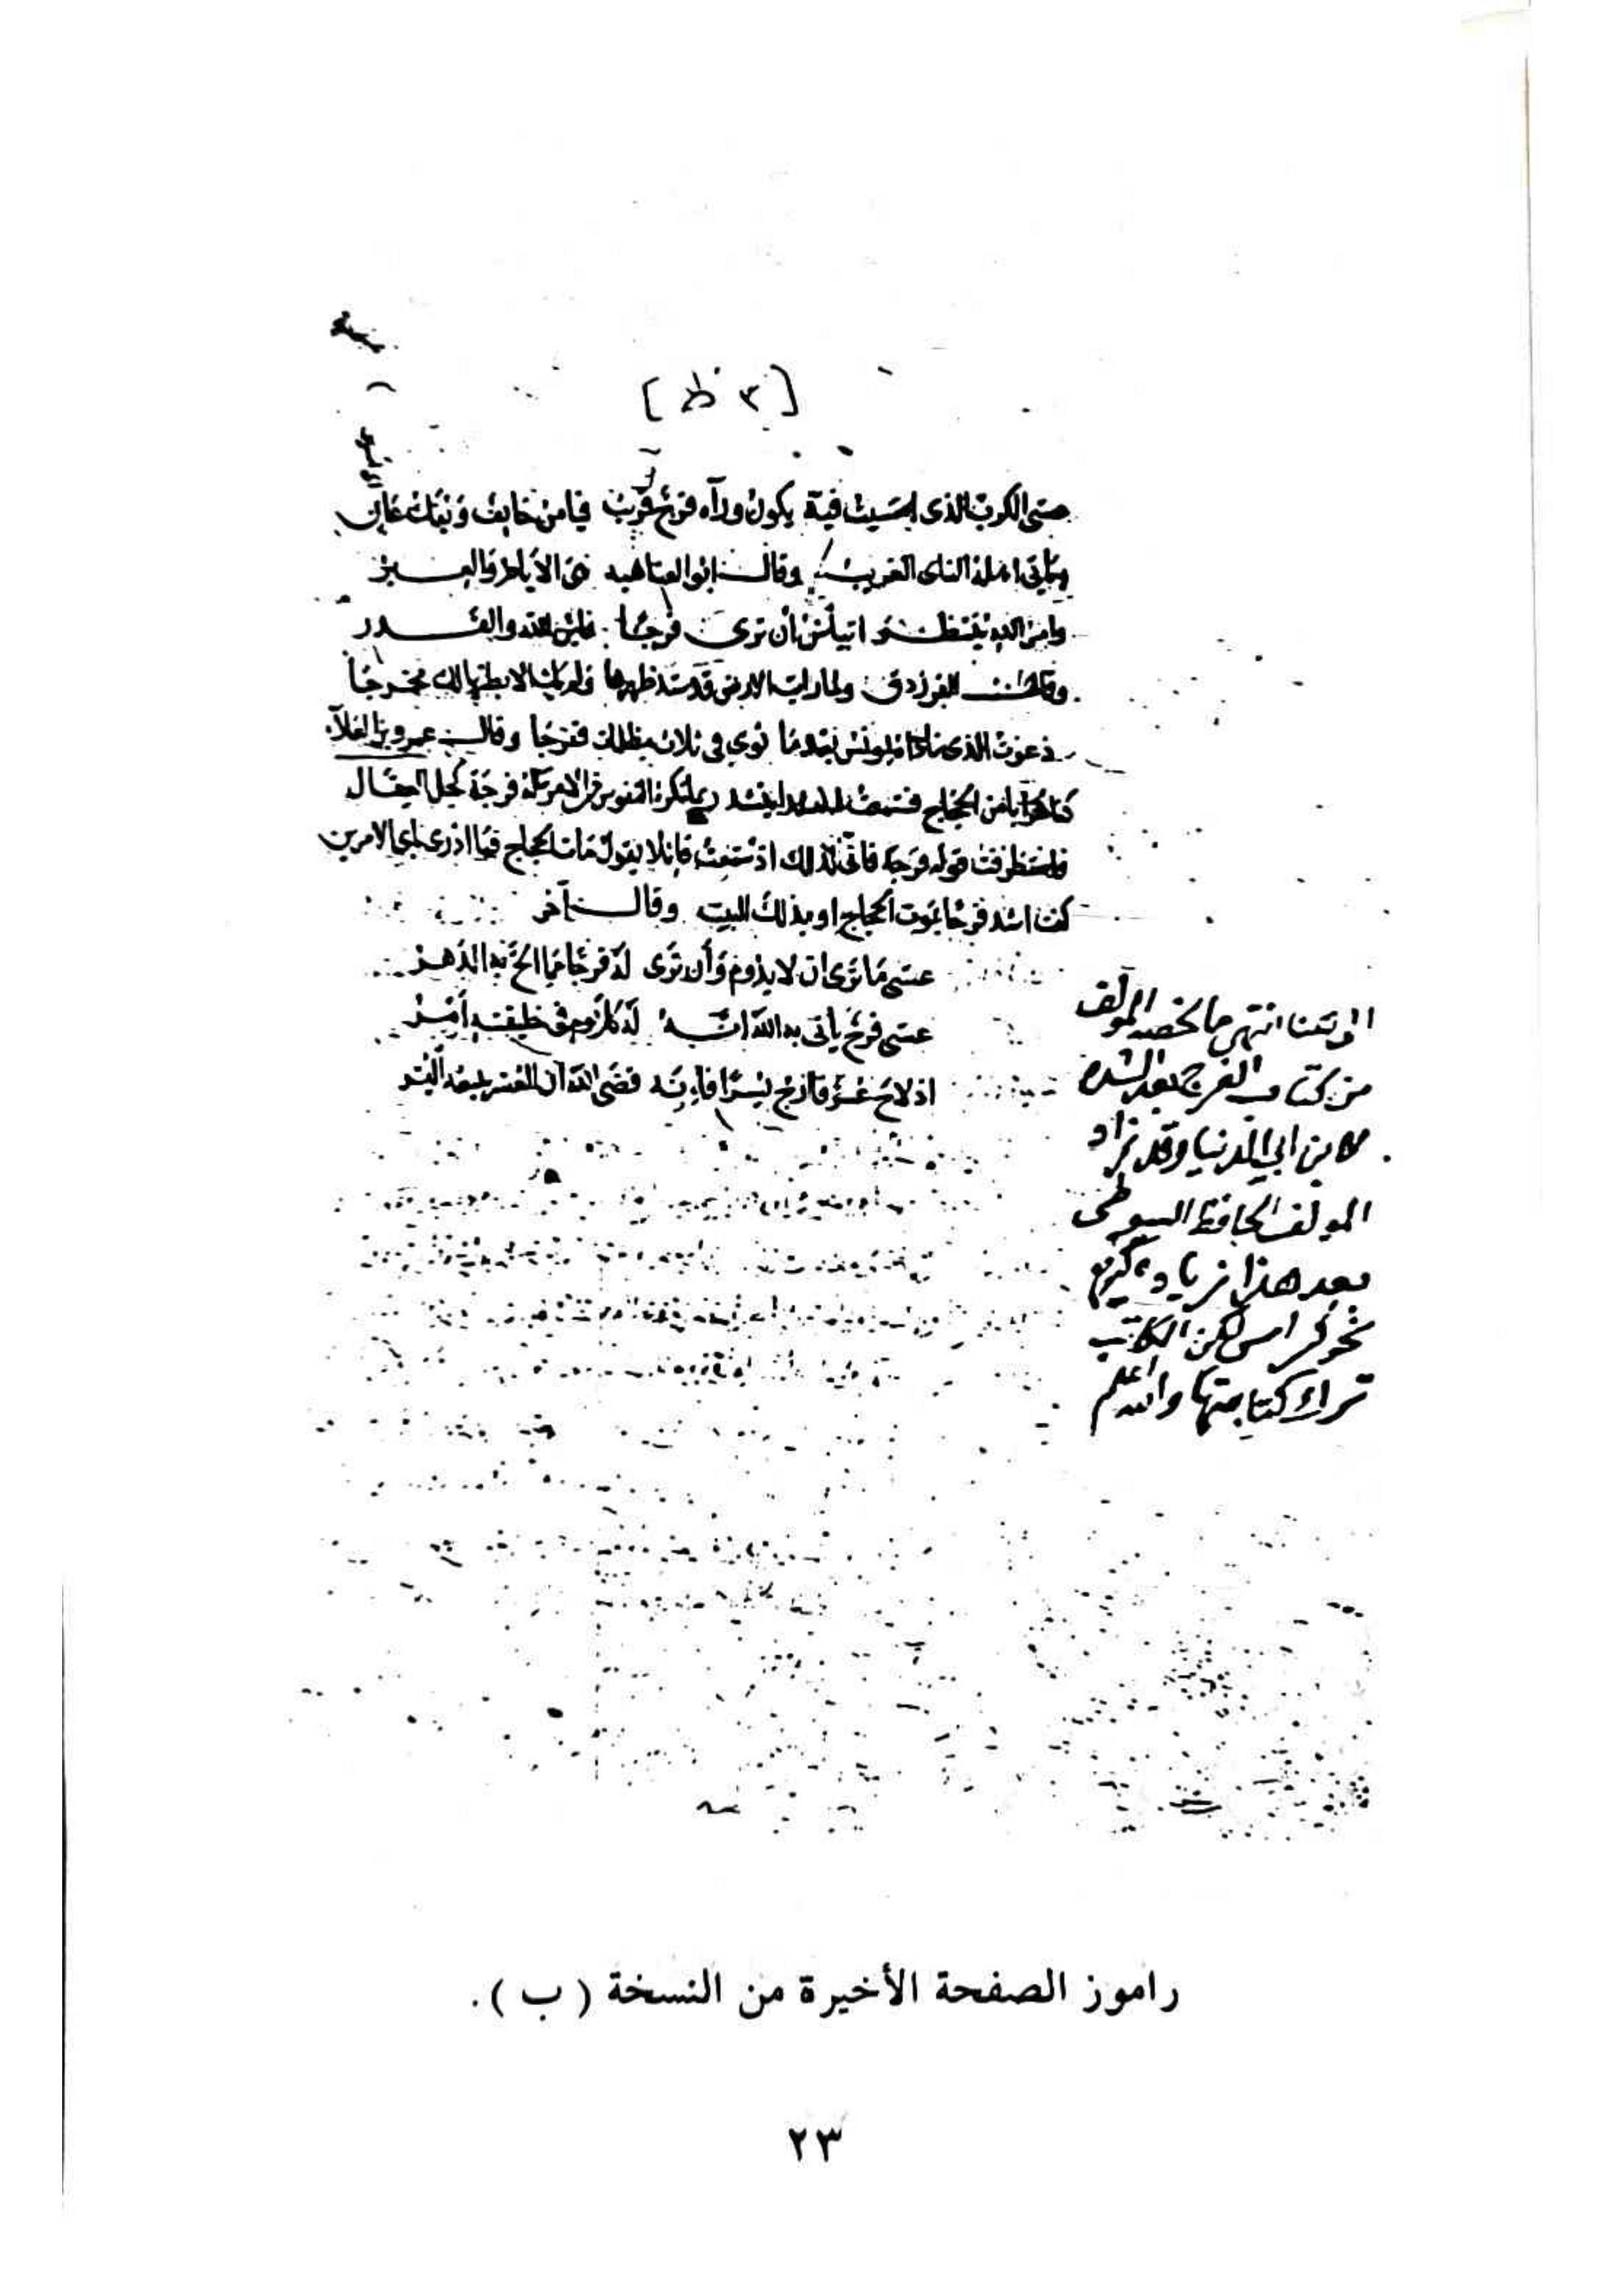 [ ٣ ظ ]
عسى الكرب الذى امسيت فيه يكون ورآه فرج قريب فيامن خايف ويفك عان
وياتى اهله الناى الغريب وقال ابو العتاهيه هى الايام والعبر
وامر الله ينتظر اتيأس أن ترى فرجا فاين الله والقدر
وقال الفرزدق ولما رايت الارض قد سد ظهرها ولم يك الا بطنها لك مخرجا
دعوت الذى ناداه يونس بعدما ثوى فى ثلاث مظلمات ففرجا وقال عمرو بن العلآء
كنا هرابا من الحجاج فسمعت منشد ربما تكره النفوس من الامر له فرجة كحل العقال
فاستظرفت قوله فرجه فانى كذلك اذ سمعت قايلا يقول مات الحجاج فما ادرى باى الامرين
كنت اشد فرحا بموت الحجاج او بذلك البيت وقال آخر
عسى ما ترى ان لا يدوم وأن ترى له فرجا مما الح به الدهر
عسى فرج ياتى به الله انه له كل يوم فى خليقته امر
اذ لاح عسر فارج يسرا فانه قضى الله ان العسر يتبعه اليسر
الى هنا انتهى ما لخصه المولف
من كتاب الفرج بعد الشده
لابن ابي الدنيا وقد زاد
المولف الحافظ السيوطى
بعد هذا زيادة كثيره
نحو كراس لكن الكاتب
ترك كتابتها والله اعلم
راموز الصفحة الأخيرة من النسخة ( ب ) .
٢٣